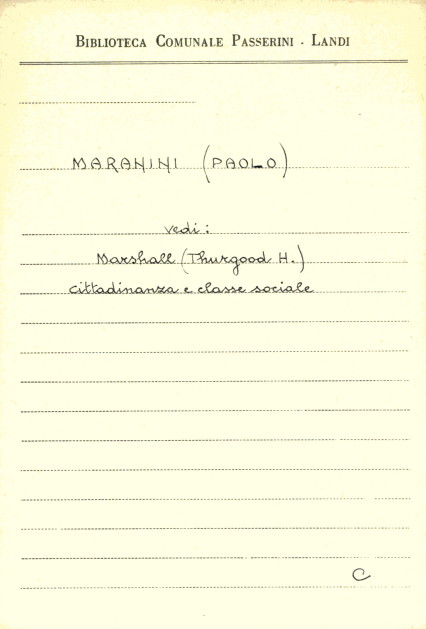 BIBLIOTECA COMUNALE PASSERINI - LANDI
MARANINI (PAOLO)
vedi:
Marshall (Thurgood H.)
cittadinanza e classe sociale
C